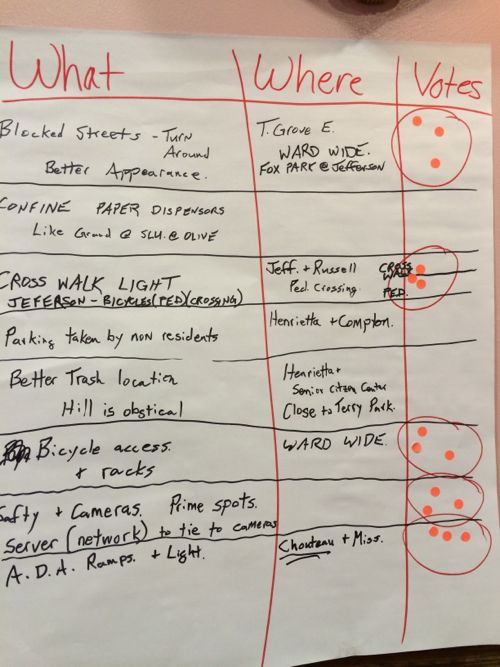 What Where Votes
Blocked Streets - Turn Around
Better Appearance.
T. Grove E.
WARD WIDE.
FOX PARK @ Jefferson
CONFINE PAPER DISPENSORS
Like Grand @ SLU. @ OLIVE
CROSS WALK LIGHT
JEFERSON - BICYCLES (PED) (CROSSING)
Jeff. + Russell
Ped. Crossing.
CROSS WALK
PED.
Parking taken by non residents
Henrietta + Compton.
Better Trash location
Hill is obstical
Henrietta +
Senior Citizen Center
Close to Terry Park.
Bicycle access.
+ racks
WARD WIDE.
Safty + Cameras. Prime spots.
Server (network) to tie to cameras
A.D.A. Ramps. + Light.
Chouteau + Miss.